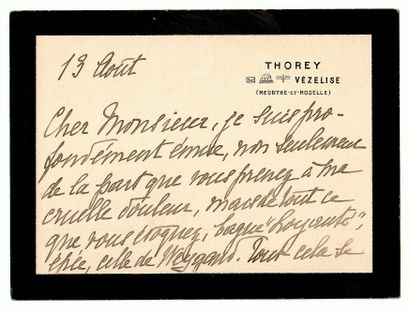 13 Août
THOREY
VÉZELISE
(MEURTHE-ET-MOSELLE)
Cher Monsieur, je suis pro-
fondément émue, non seulement
de la part que vous prenez à ma
cruelle douleur, mais de tout ce
que vous évoquez, bague "Loyauté",
épée, celle de Weygand. Tout cela se